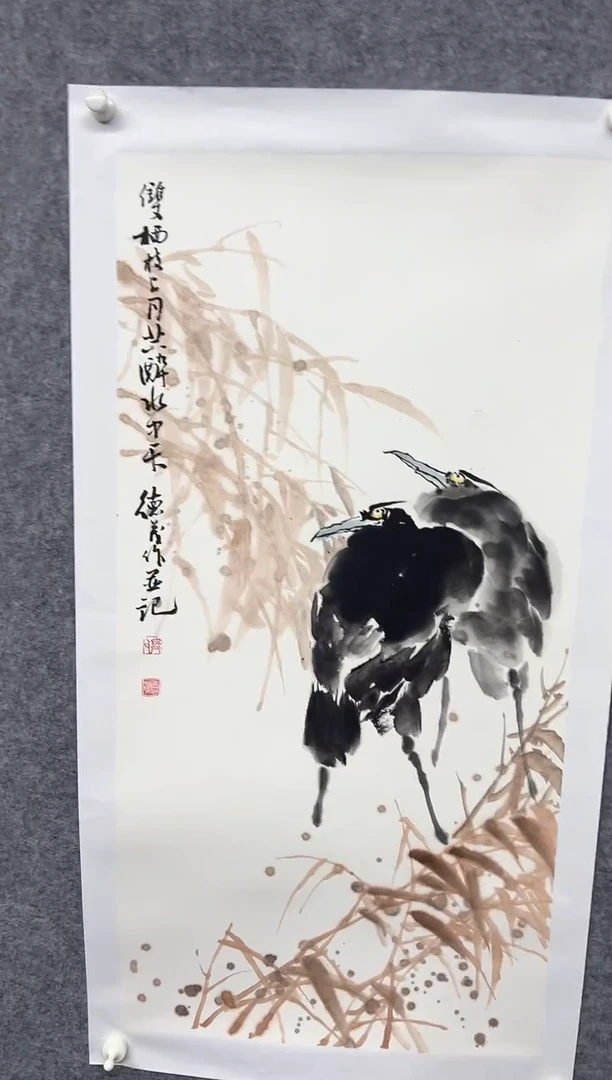 雙栖枝上月共醉水中天
德茂作並記